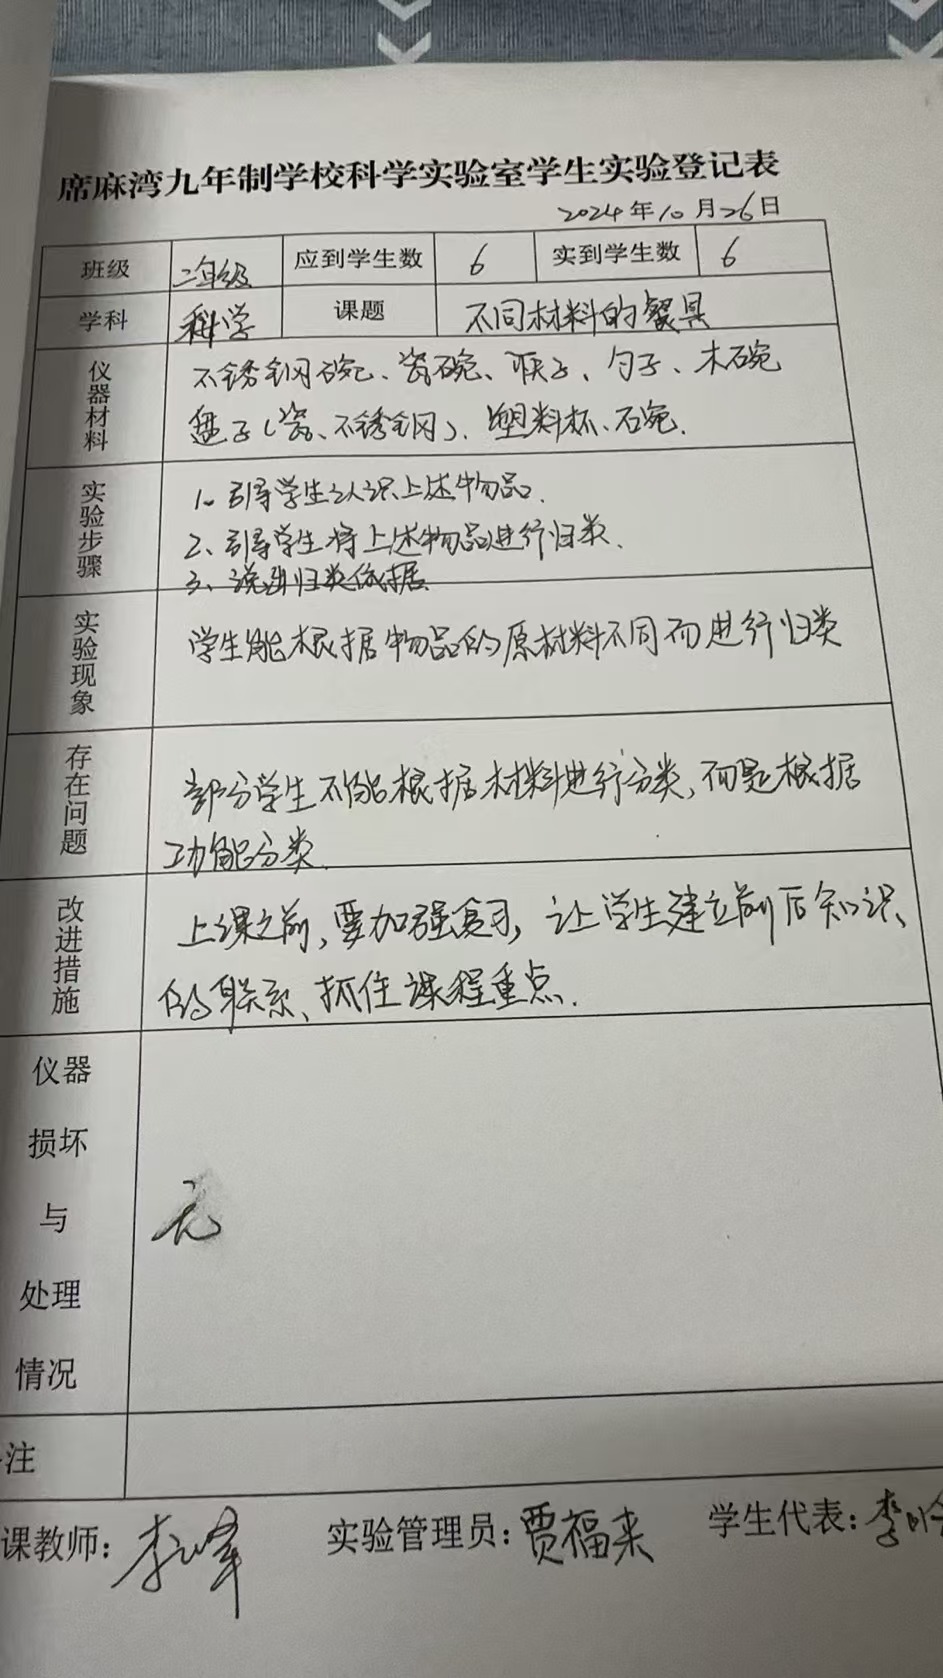 席麻湾九年制学校科学实验室学生实验登记表
2024年10月26日
班级 二年级 应到学生数 6 实到学生数 6
学科 科学 课题 不同材料的餐具
仪器材料
不锈钢碗、瓷碗、筷子、勺子、木碗
盘子(瓷、不锈钢)、塑料杯、石碗.
实验步骤
1. 引导学生认识上述物品.
2、引导学生将上述物品进行归类、
3、说出归类依据.
实验现象
学生能根据物品的原材料不同而进行归类
存在问题
部分学生不能根据材料进行分类,而是根据
功能分类.
改进措施
上课之前,要加强复习,让学生建立前后知识
的联系、抓住课程重点.
仪器
损坏
与
处理
情况
无
注
课教师: 李峰 实验管理员: 贾福来 学生代表: 李